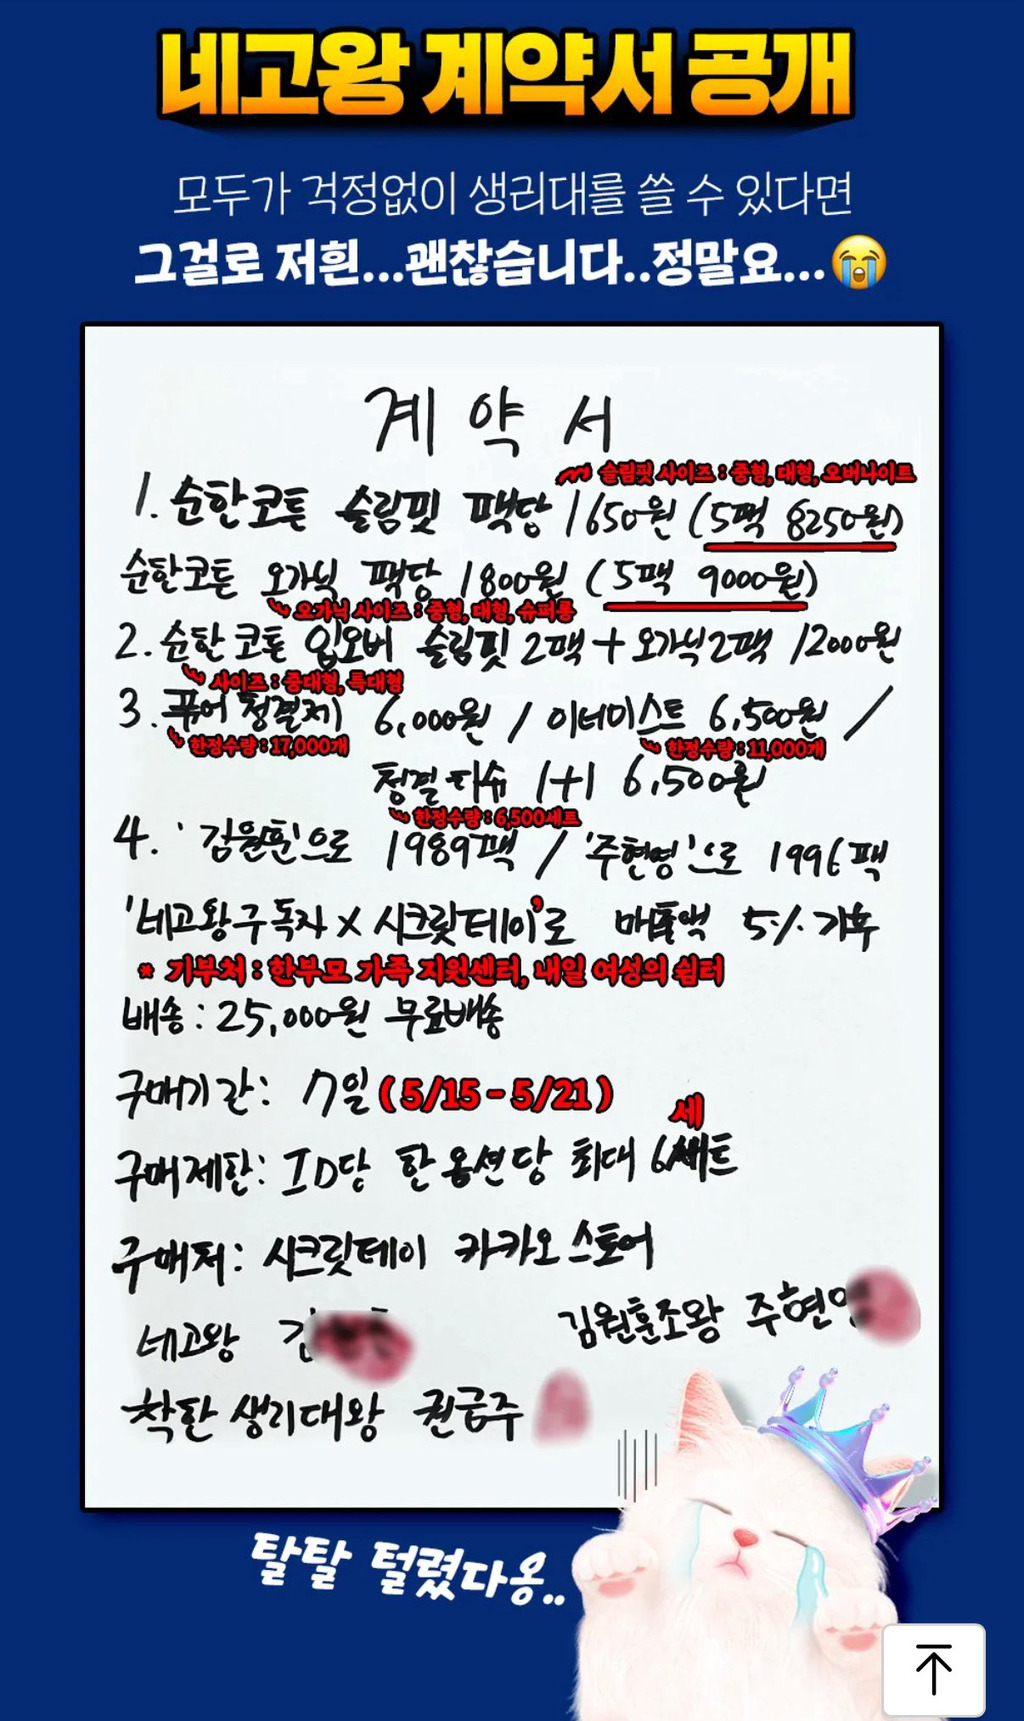 네고왕 계약서 공개
모두가 걱정없이 생리대를 쓸 수 있다면
그걸로 저흰...괜찮습니다..정말요...
계약서
슬림핏 사이즈 : 중형, 대형, 오버나이트
1. 순한코튼 슬림핏 팩당 1650원 (5팩 8250원)
순한코튼 오가닉 팩당 1800원 (5팩 9000원)
오가닉 사이즈 : 중형, 대형, 슈퍼롱
2. 순한코튼 입오버 슬림핏 2팩 + 오가닉 2팩 12000원
사이즈 : 중대형, 특대형
3. 퓨어 청결제 6,000원 / 이너미스트 6,500원 /
한정수량 : 17,000개 한정수량 : 11,000개
청결 티슈 1+1 6,500원
한정수량 : 6,500세트
4. '김원훈'으로 1989팩 / '주현영'으로 1996팩
'네고왕구독자 x 시크릿데이'로 매출액 5% 기부
* 기부처 : 한부모 가족 지원센터, 내일 여성의 쉼터
배송 : 25,000원 무료배송
구매기간 : 7일 (5/15 - 5/21)
세
구매제한 : ID당 한 옵션당 최대 6세트
구매처 : 시크릿데이 카카오스토어
네고왕 김원훈조왕 주현영
착한 생리대왕 권금주
탈탈 털렸다옹..